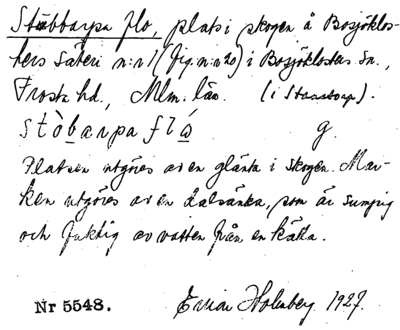 Stubbarpa flo, plats i skogen å Bosjöklos-
ters Säteri n:r 1 (fig. n:r 20) i Bosjöklosters Sn.,
Frosta hd., Mlm. län. (i Stanstorp).
stòbarpa flá g.
Platsen utgöres av en glänta i skogen. Mar-
ken utgöres av en dalsänka, som är sumpig
och fuktig av vatten från en källa.
Nr 5548. Holmberg 1927.